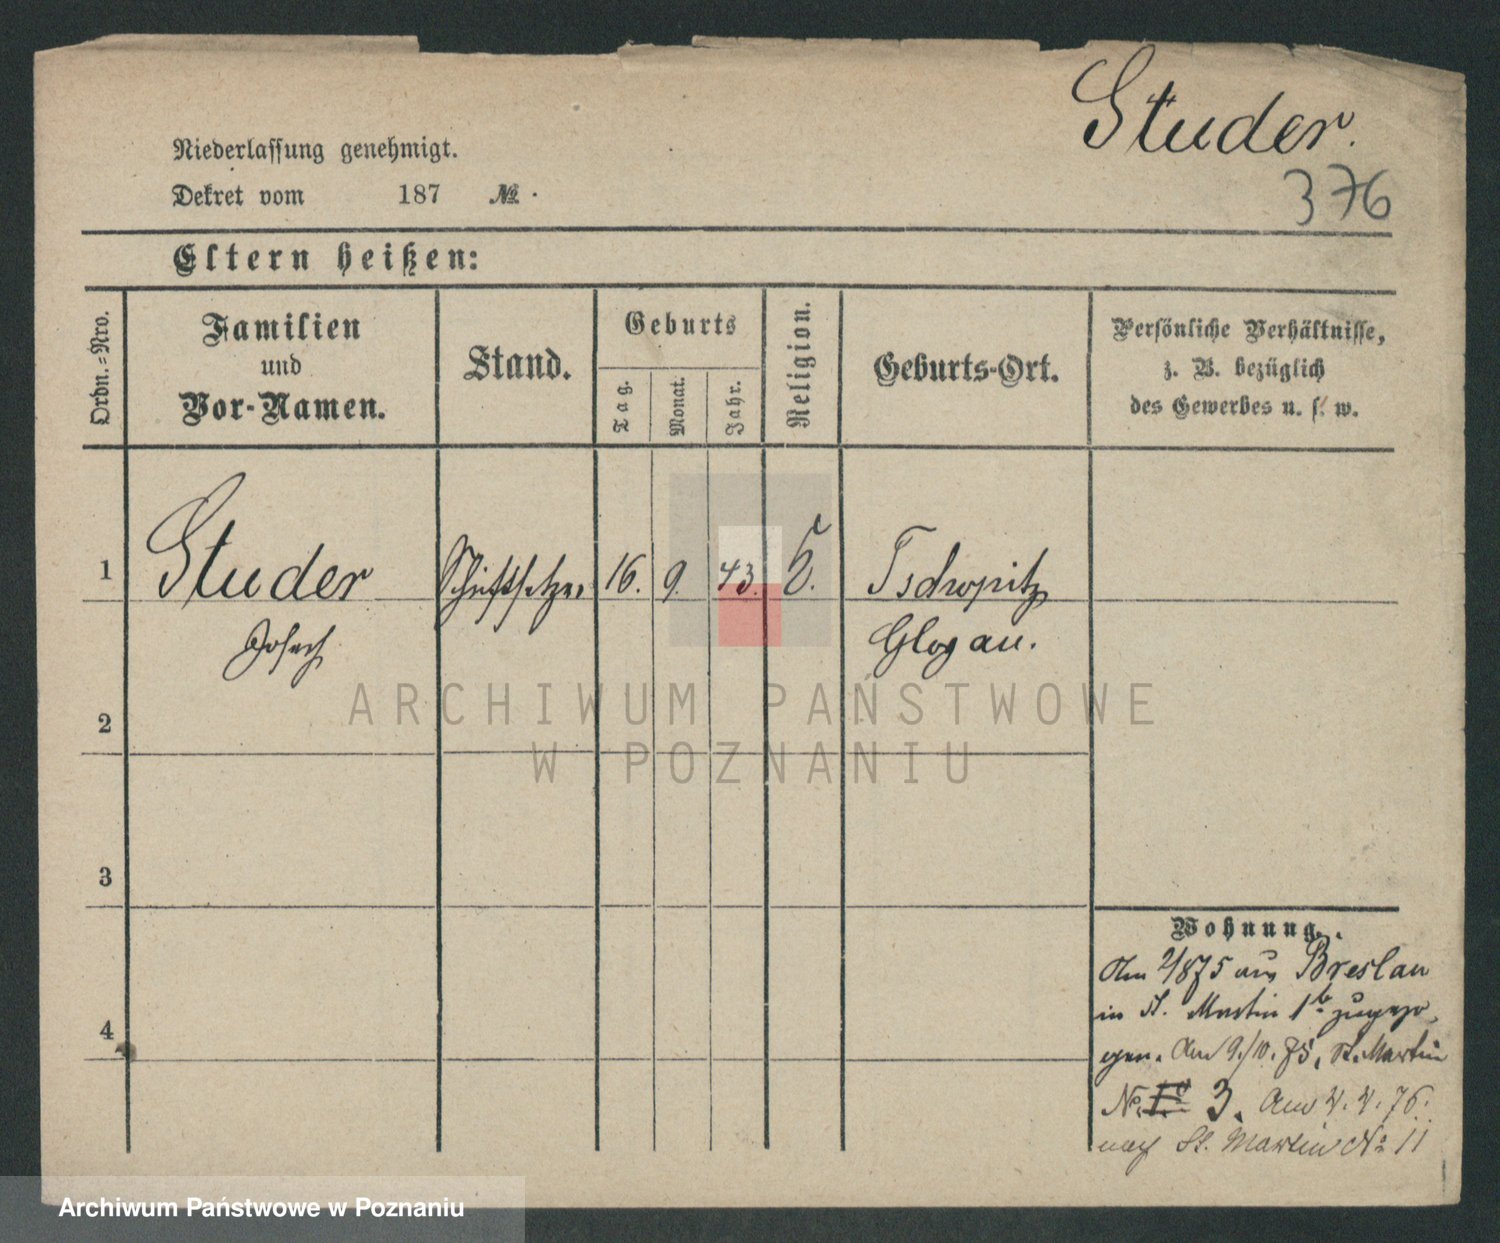 Studer.
376
Niederlassung genehmigt.
Dekret vom 187 №.
Eltern heißen:
Ordn.-Nro.
Familien
und
Vor-Namen.
Stand.
Geburts
Tag.
Monat.
Jahr.
Religion.
Geburts-Ort.
Persönliche Verhältnisse,
z. B. bezüglich
des Gewerbes u. s. w.
1 Studer Schriftsetzer 16. 9. 43. Tschopitz
Josef Glogau.
2
3
4
Wohnung.
Am 2/875 aus Breslau
in St. Martin 1b zugezo
gen. Am 9./10. 75, St. Martin
No. 3. Am 4. 4. 76.
nach St. Martin No 11
ARCHIWUM PAŃSTWOWE
W POZNANIU
Archiwum Państwowe w Poznaniu